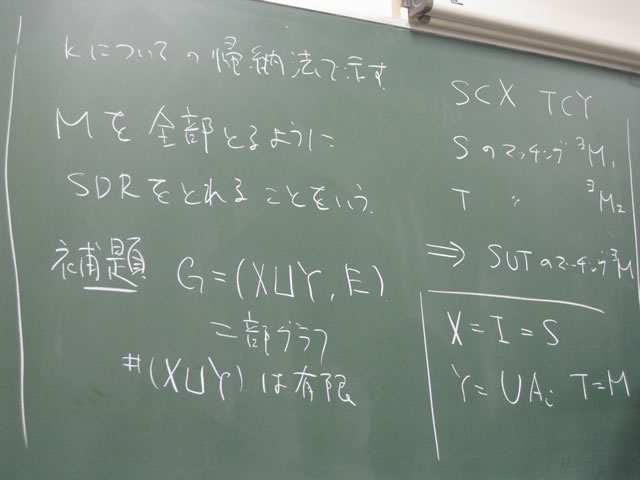 kについての帰納法で示す
Mを全部とるように
SDRをとれることをいう.
補題 G=(X⊔Y, E)
二部グラフ
#(X⊔Y)は有限
S⊂X T⊂Y
Sのマッチング ∃M₁
T 〃 ∃M₂
⇒ S∪Tのマッチング∃M
X=I=S
Y=∪Aᵢ T=M